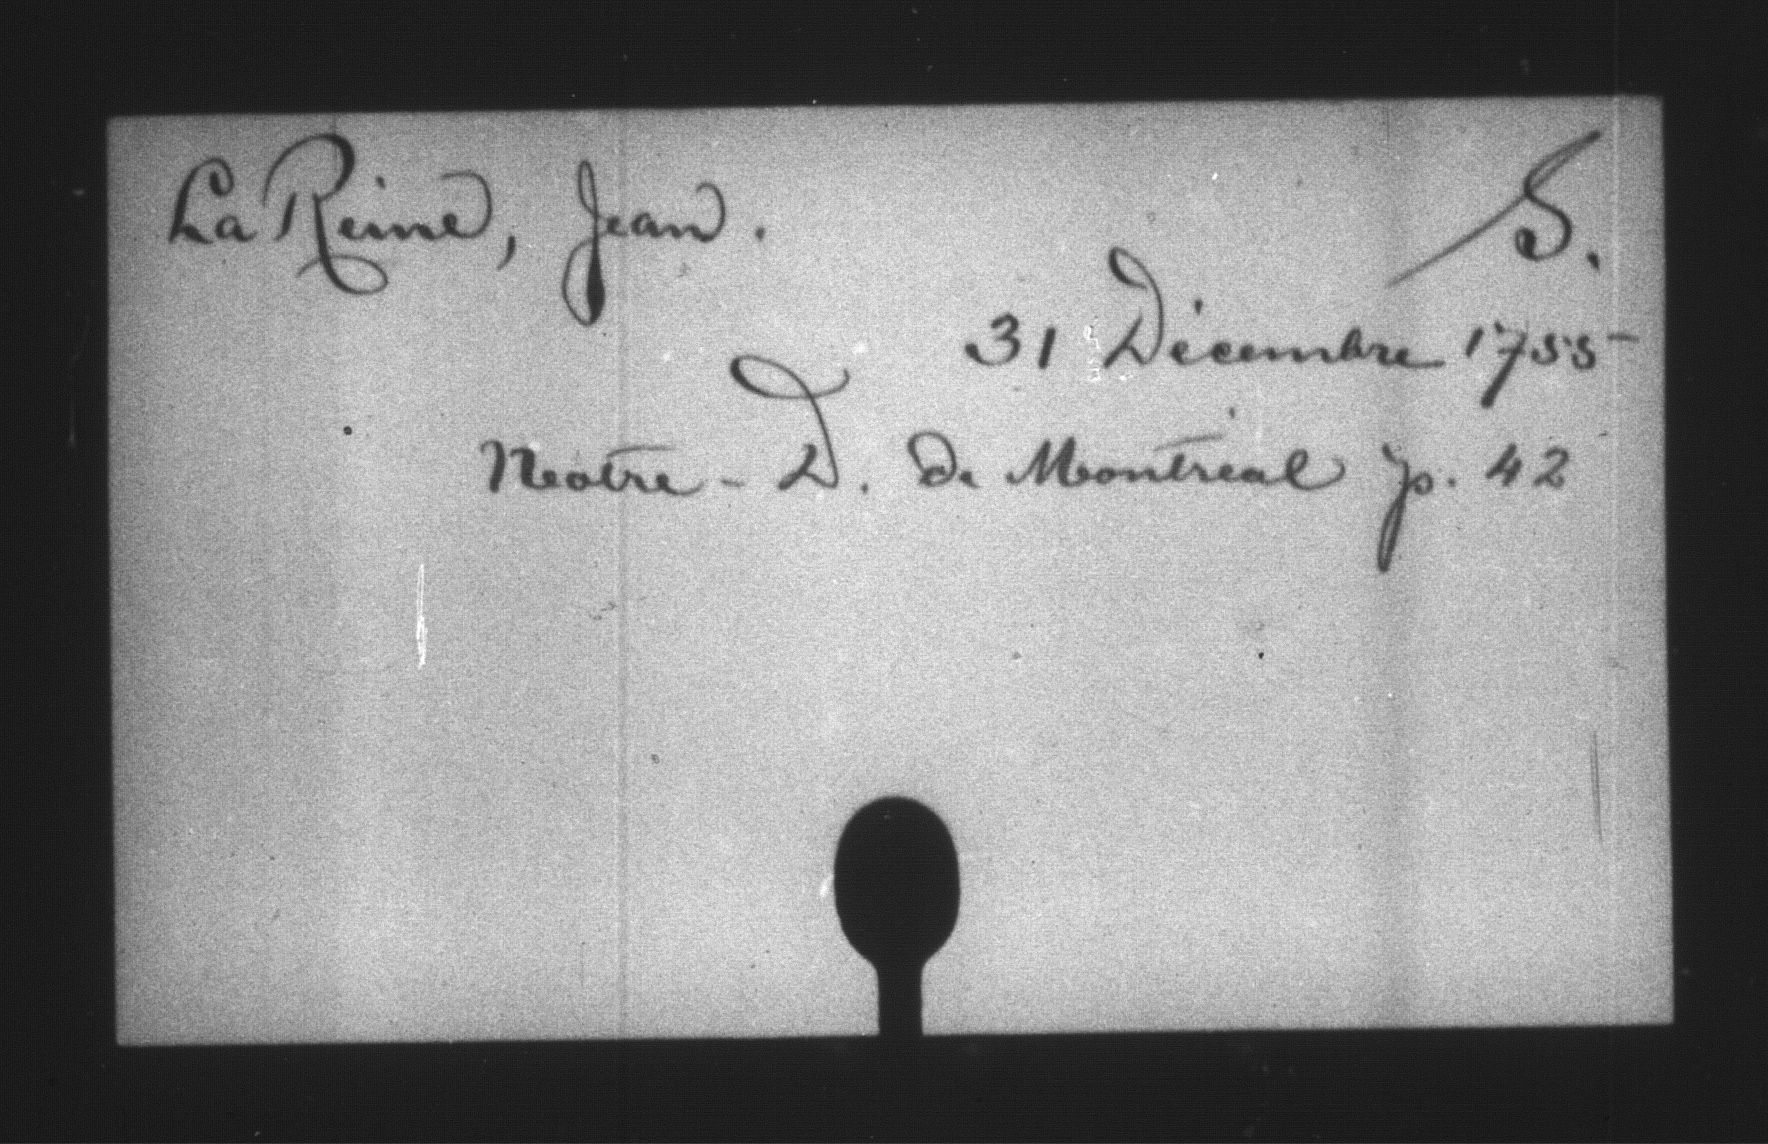 La Reine, Jean.
S.
31 Décembre 1755
Notre-D. de Montréal p. 42